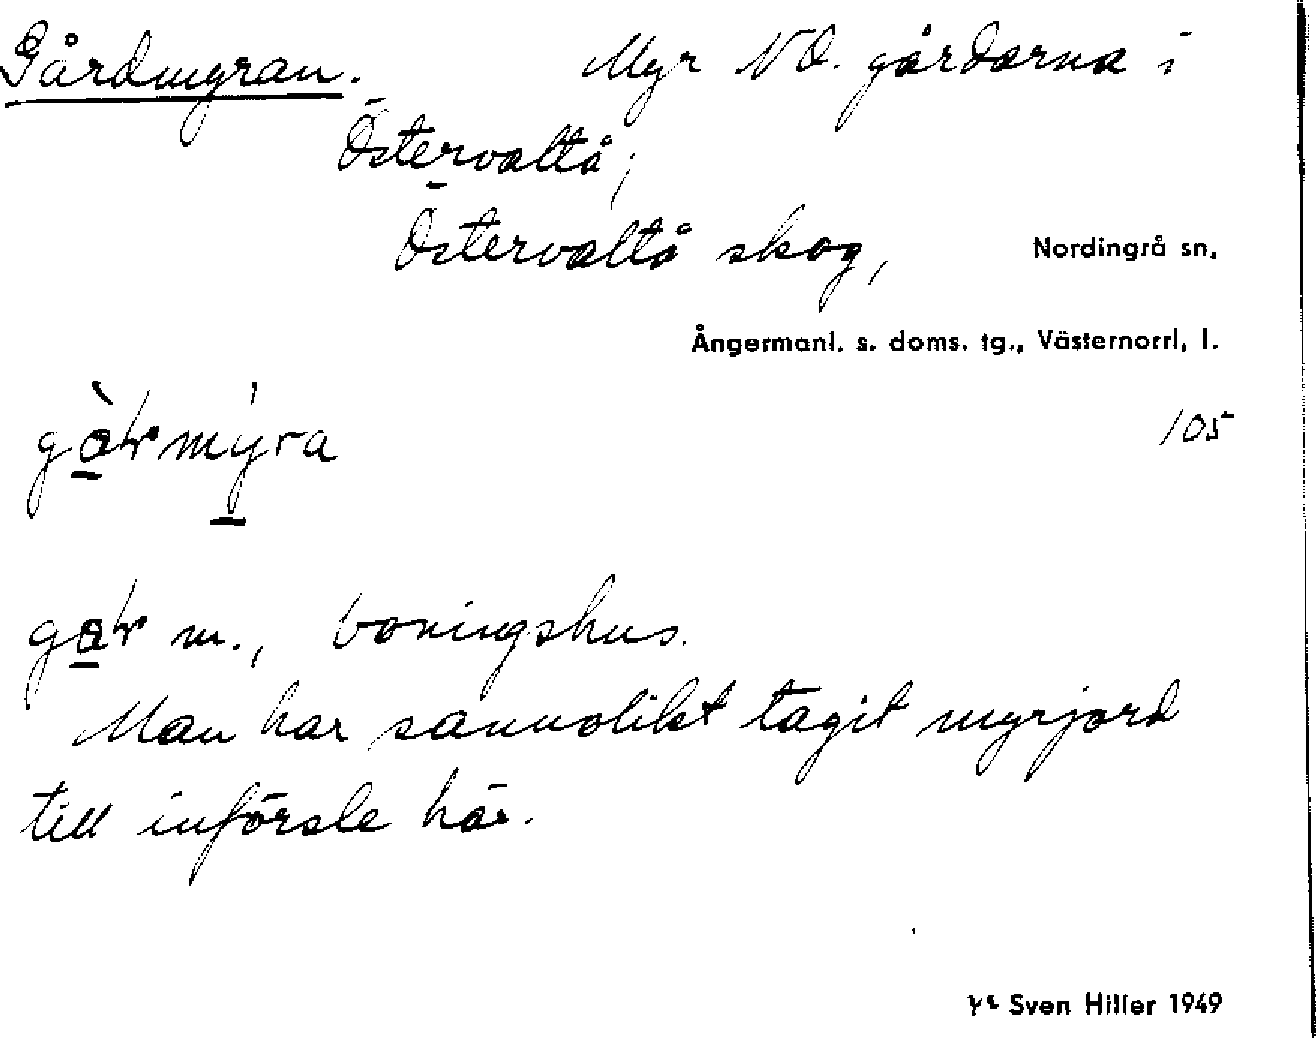 Gårdmyran. Myr NO. gårdarna i
Östervaltå;
Östervaltå skog, Nordingrå sn,
Ångermanl. s. doms. tg., Västernorrl, l.
105
m., boningshus.
Man har sannolikt tagit myrjord
till införsle här.
Sven Hiller 1949